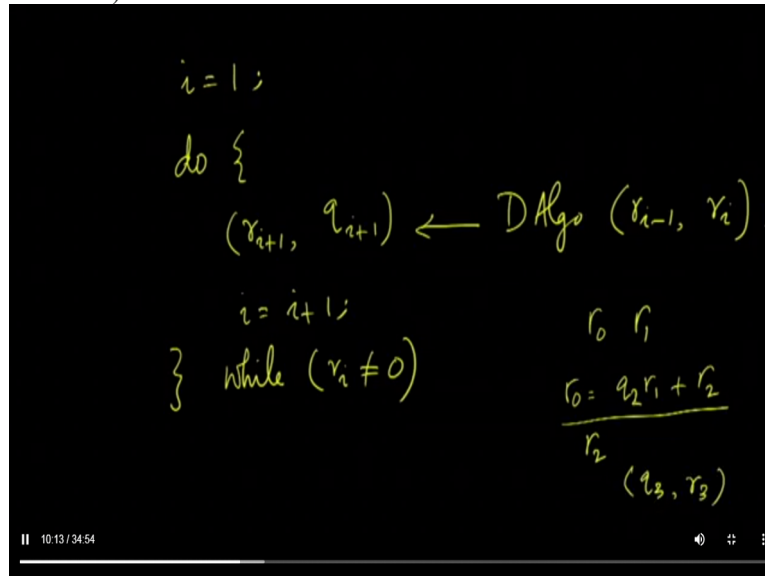 i = 1;
do {
(r_{i+1}, q_{i+1}) ← DAlgo (r_{i-1}, r_i)
i = i + 1;
} while (r_i ≠ 0)
r_0 r_1
r_0 = q_2 r_1 + r_2
r_2
(q_3, r_3)
10:13 / 34:54